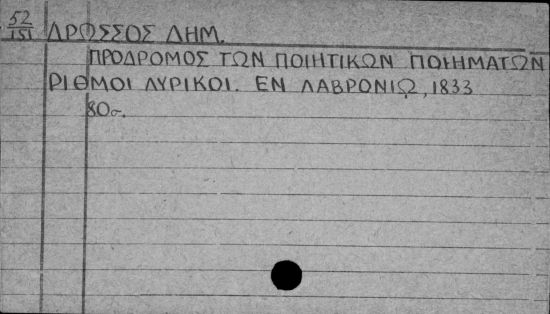 52
151 ΔΡΟΣΣΟΣ ΔΗΜ.
ΠΡΟΔΡΟΜΟΣ ΤΩΝ ΠΟΙΗΤΙΚΩΝ ΠΟΙΗΜΑΤΩΝ
ΡΙΘΜΟΙ ΛΥΡΙΚΟΙ. ΕΝ ΛΑΒΡΟΝΙΩ, 1833
80σ.